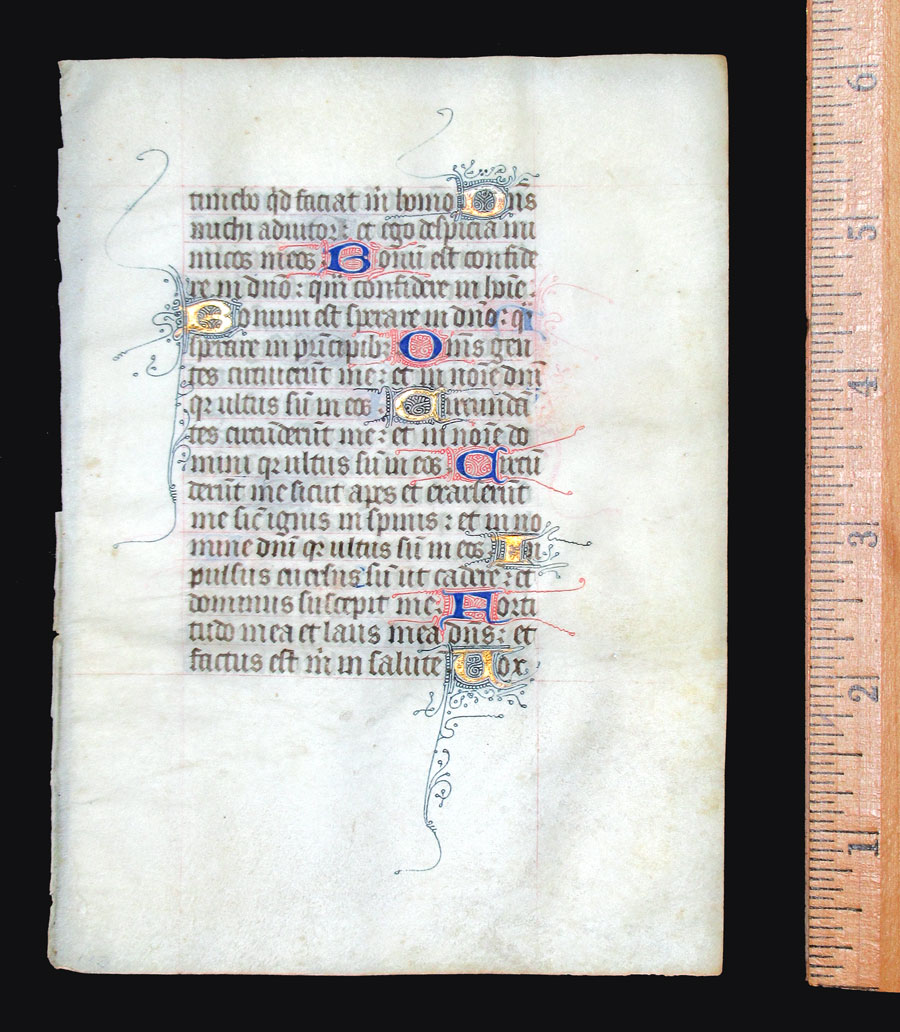 timebo q̇d faciat m̄ homo Dn̄s
michi adiutor : et ego despiciā ini
micos meos Bonū est confide
re in dn̄o : qm̄ confidere in hōīe :
Bonum est sperare in dn̄o : q̄
sperare in prīcipibꝫ Om̄s gen
tes circuierūt me : et in noīe dn̄i
qꝛ ultus sū in eos Circundā
tes circūderūt me : et in noīe do
mini qꝛ ultus sū in eos Circū
derūt me sicut apes et exarserūt
me sic̄ ignis in spinis : et in no
mine dn̄i qꝛ ultus sū in eos In
pulsus euersus sū ut cadere : et
dominus suscepit me : Forti
tudo mea et laus mea dn̄s : et
factus est m̄ in salutē Vox
6
5
4
3
2
1